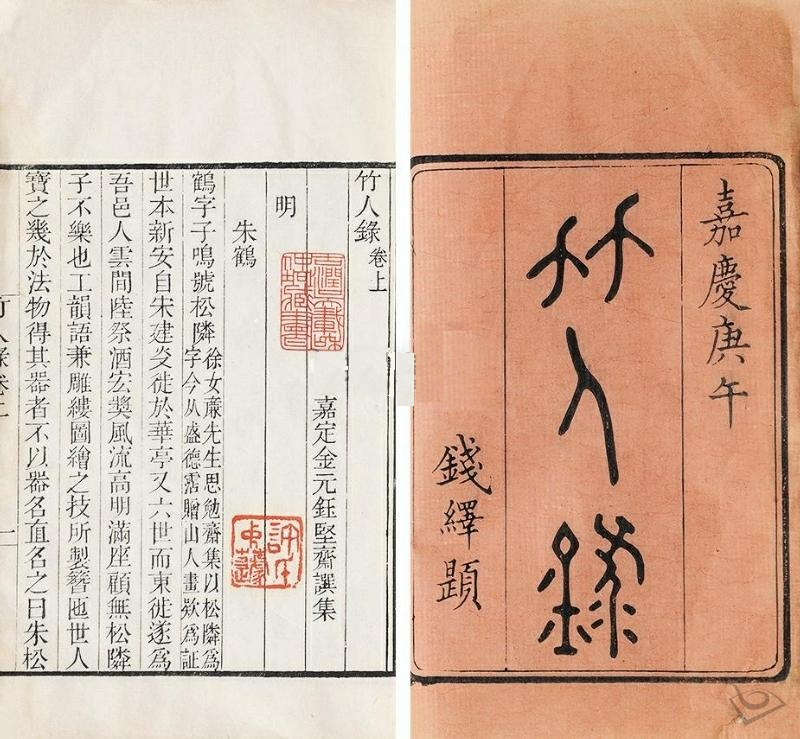 嘉慶庚午
竹人錄
錢繹題
竹人錄 卷上
嘉定金元鈺堅齋譔集
明
朱鶴
鶴字子鳴號松隣
徐女廉先生思勉齋集以松隣爲
字今从盛德贈山人畫欵爲証
世本新安自宋建炎徙於華亭又六世而東徙遂爲
吾邑人雲間陸祭酒宏奬風流高明滿座顧無松隣
子不樂也工韻語兼雕縷圖繪之技所製簪匜世人
寶之幾於法物得其器者不以器名直名之曰朱松
竹人錄卷上
一